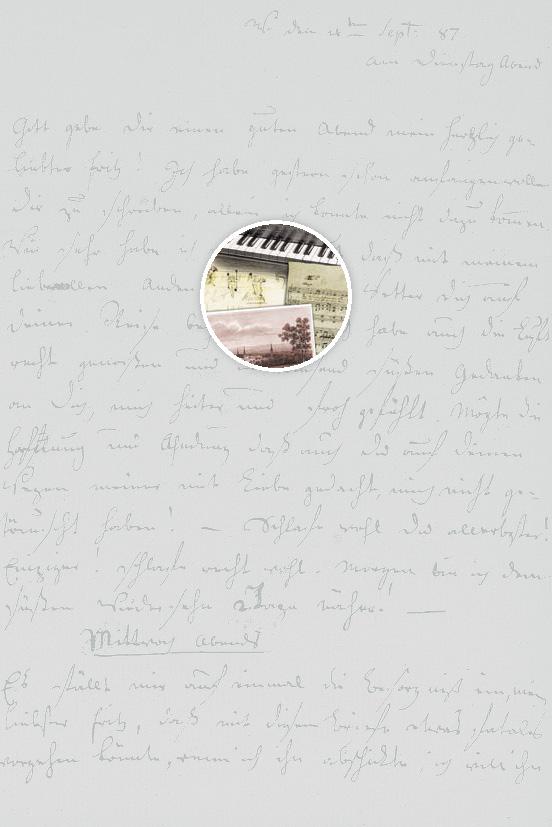 den 18ten Sept: 87
am Dienstag Abend
Gott gebe dir einen guten Abend mein herzlich ge-
liebter Fritz! Ich habe gestern schon anfangen wollen
dir zu schreiben, allein ich konnte nicht dazu kommen
Wie sehr habe ich daß mit meinem
liebevollen Wetter dich auf
deiner Reise habe auch die Luft
recht genoßen und süßen Gedanken
an dich, mich heiter und froh gefühlt. Mögte die
Hoffnung und Ahndung daß auch du auf deinen
Wegen meiner mit Liebe gedacht, mich nicht ge-
täuscht haben! — Schlafe wohl du allerbester!
Einziger! schlafe recht wohl. Morgen bin ich dem
süßen Wiedersehn 2 Tage näher! —
Mittwoch Abends
Es fällt mir auf einmal die Besorgniß ein, mein
liebster Fritz, daß mit diesem Briefe etwas fatales
vorgehen könnte, wenn ich ihn abschickte, ich will ihn